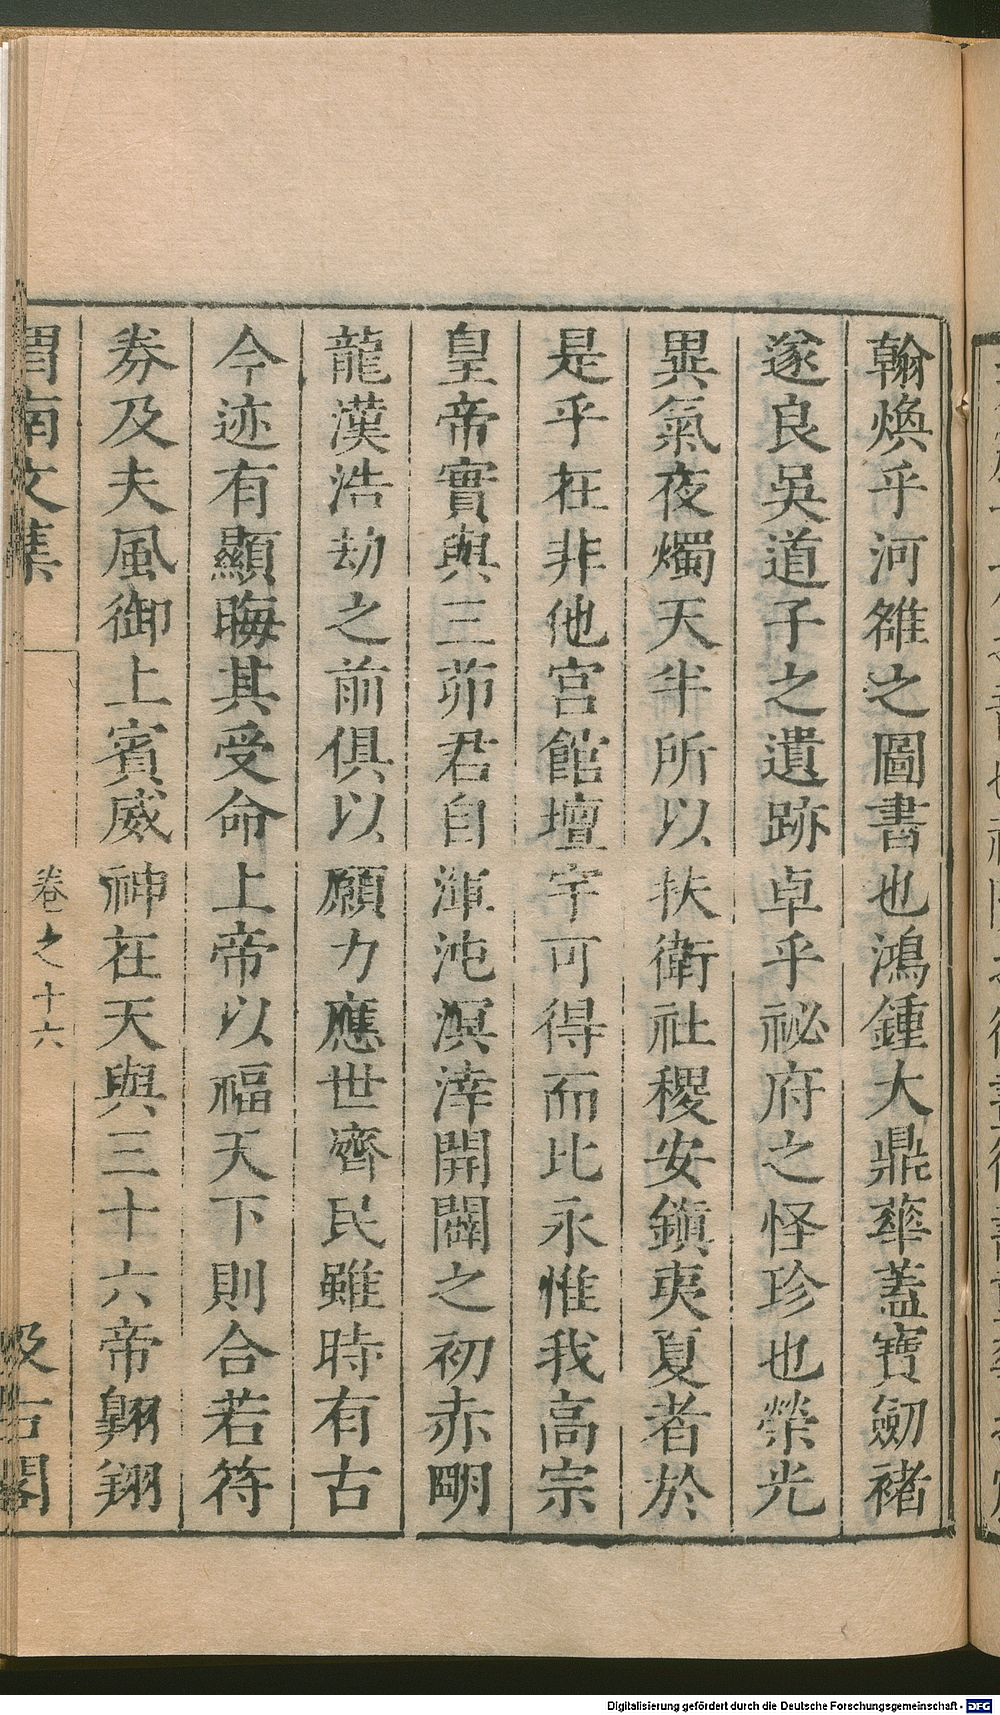 翰煥乎河雒之圖書也鴻鍾大鼎華蓋寶劒褚
遂良吳道子之遺跡卓乎祕府之怪珍也榮光
異氣夜燭天半所以扶衛社稷安鎭夷夏者於
是乎在非他宫館壇宇可得而比永惟我高宗
皇帝實與三茆君自渾沌溟涬開闢之初赤明
龍漢浩劫之前俱以願力應世齊民雖時有古
今迹有顯晦其受命上帝以福天下則合若符
券及夫風御上賓威神在天與三十六帝翺翔
渭南文集
卷之十六
汲古閣
Digitalisierung gefördert durch die Deutsche Forschungsgemeinschaft - DFG